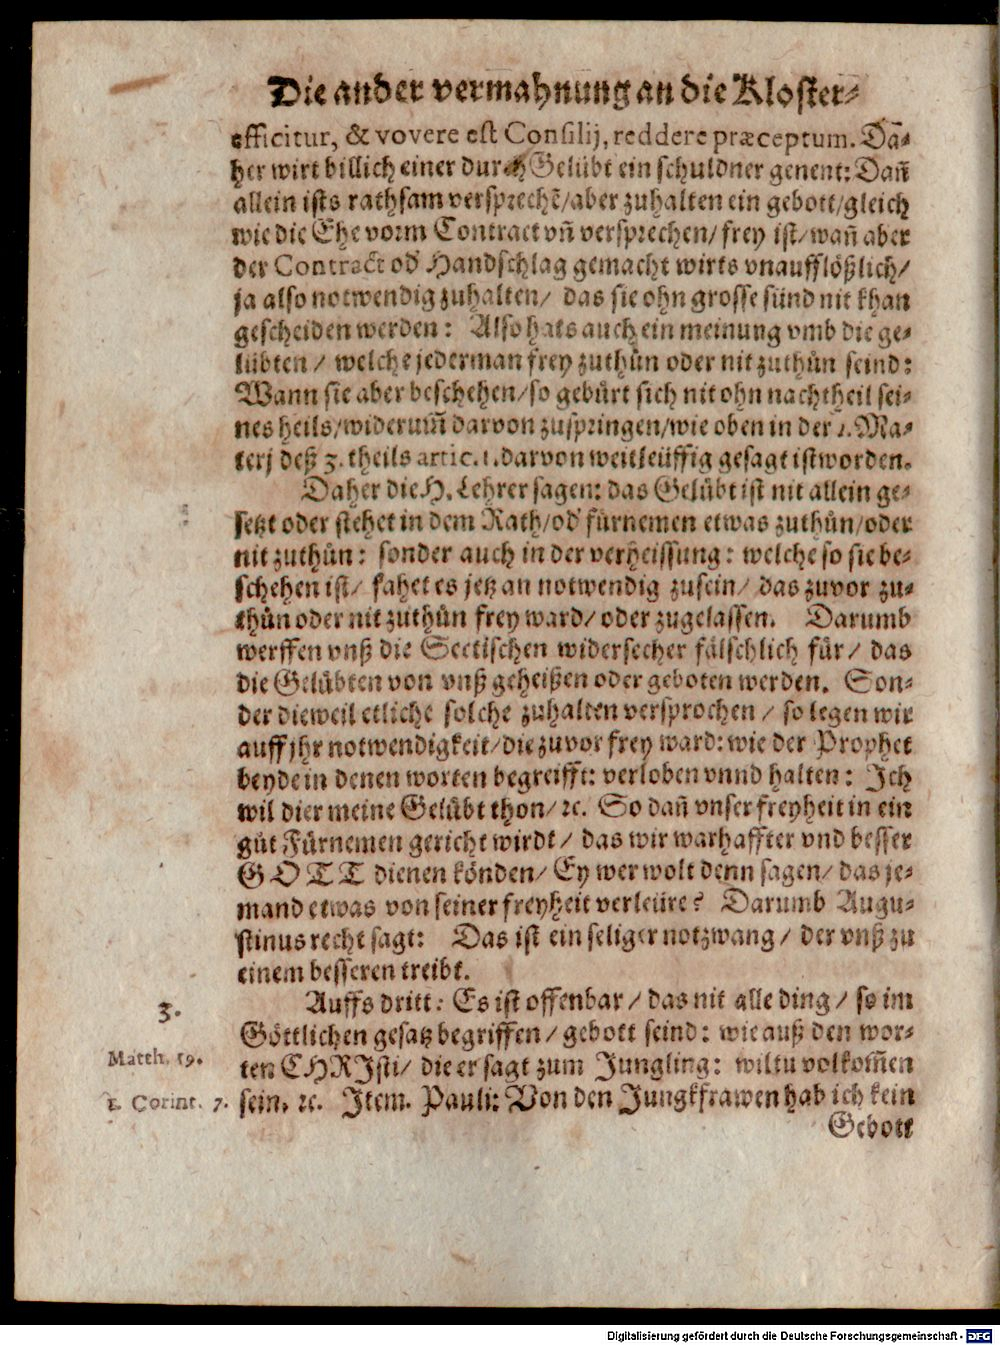 Die ander vermahnung an die Kloster⸗
efficitur, & vovere est Consilij, reddere præceptum. Da᷈⸗
her wirt billich einer durch Gelübt ein schuldner genent: Dañ
allein ists rathsam versprechẽ/ aber zuhalten ein gebott/ gleich
wie die Ehe vorm Contract vñ versprechen/ frey ist/ wañ aber
der Contract od' Handschlag gemacht wirts vnaufflößlich/
ja also notwendig zuhalten/ das sie ohn grosse sünd nit khan
gescheiden werden: Also hats auch ein meinung vmb die ge⸗
lübten / welche jederman frey zuthůn oder nit zuthůn seind:
Wann sie aber beschehen/ so gebürt sich nit ohn nachtheil sei⸗
nes heils/ widerum̃ darvon zuspringen/ wie oben in der 1. Ma⸗
terj deß 3. theils artic. 1. darvon weitleüffig gesagt ist worden.
Daher die H. Lehrer sagen: das Gelübt ist nit allein ge⸗
setzt oder stehet in dem Rath/ od' fürnemen etwas zuthůn/ oder
nit zuthůn: sonder auch in der verheissung: welche so sie be⸗
schehen ist/ fahet es jetz an notwendig zusein/ das zuvor zu⸗
thůn oder nit zuthůn frey ward/ oder zugelassen. Darumb
werffen vnß die Sectischen widersecher fälschlich für/ das
die Gelübten von vnß geheißen oder geboten werden. Son⸗
der dieweil etliche solche zuhalten versprochen / so legen wir
auff jhr notwendigkeit/ die zuvor frey ward: wie der Prophet
beyde in denen worten begreifft: verloben vnnd halten: Ich
wil dier meine Gelübt thon/ ꝛc. So dañ vnser freyheit in ein
gůt Fürnemen gericht wirdt/ das wir warhaffter vnd besser
GOTT dienen könden/ Ey wer wolt denn sagen/ das je⸗
mand etwas von seiner freyheit verleüre? Darumb Augu⸗
stinus recht sagt: Das ist ein seliger notzwang/ der vnß zu
einem besseren treibt.
3.
Auffs dritt: Es ist offenbar/ das nit alle ding/ so im
Göttlichen gesatz begriffen/ gebott seind: wie auß den wor⸗
Matth. 19.
ten CHRIsti/ die er sagt zum Jungling: wiltu volkom̃en
1. Corint. 7.
sein, ꝛc. Item. Pauli: Von den Jungkfrawen hab ich kein
Gebott
Digitalisierung gefördert durch die Deutsche Forschungsgemeinschaft - DFG